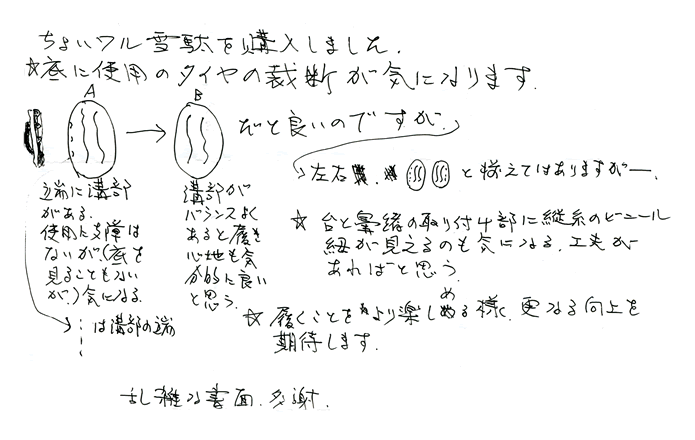 ちょいワル雪駄を購入しました.
☆底に使用のタイヤの裁断が気になります.
A
B
だと良いのですが.
左右 と揃えてはありますがー.
端に溝部
がある.
使用に支障は
ないが(底を
見ることもない
が.)気になる.
は溝部の端
溝部が
バランスよく
あると履き
心地も気
分的に良い
と思う.
☆ 台と鼻緒の取り付け部に縦糸のビニール
紐が見えるのも気になる.工夫が
あればと思う.
☆ 履くことをより楽しめる様に更なる向上を
め
期待します.
乱雑な書面.多謝.